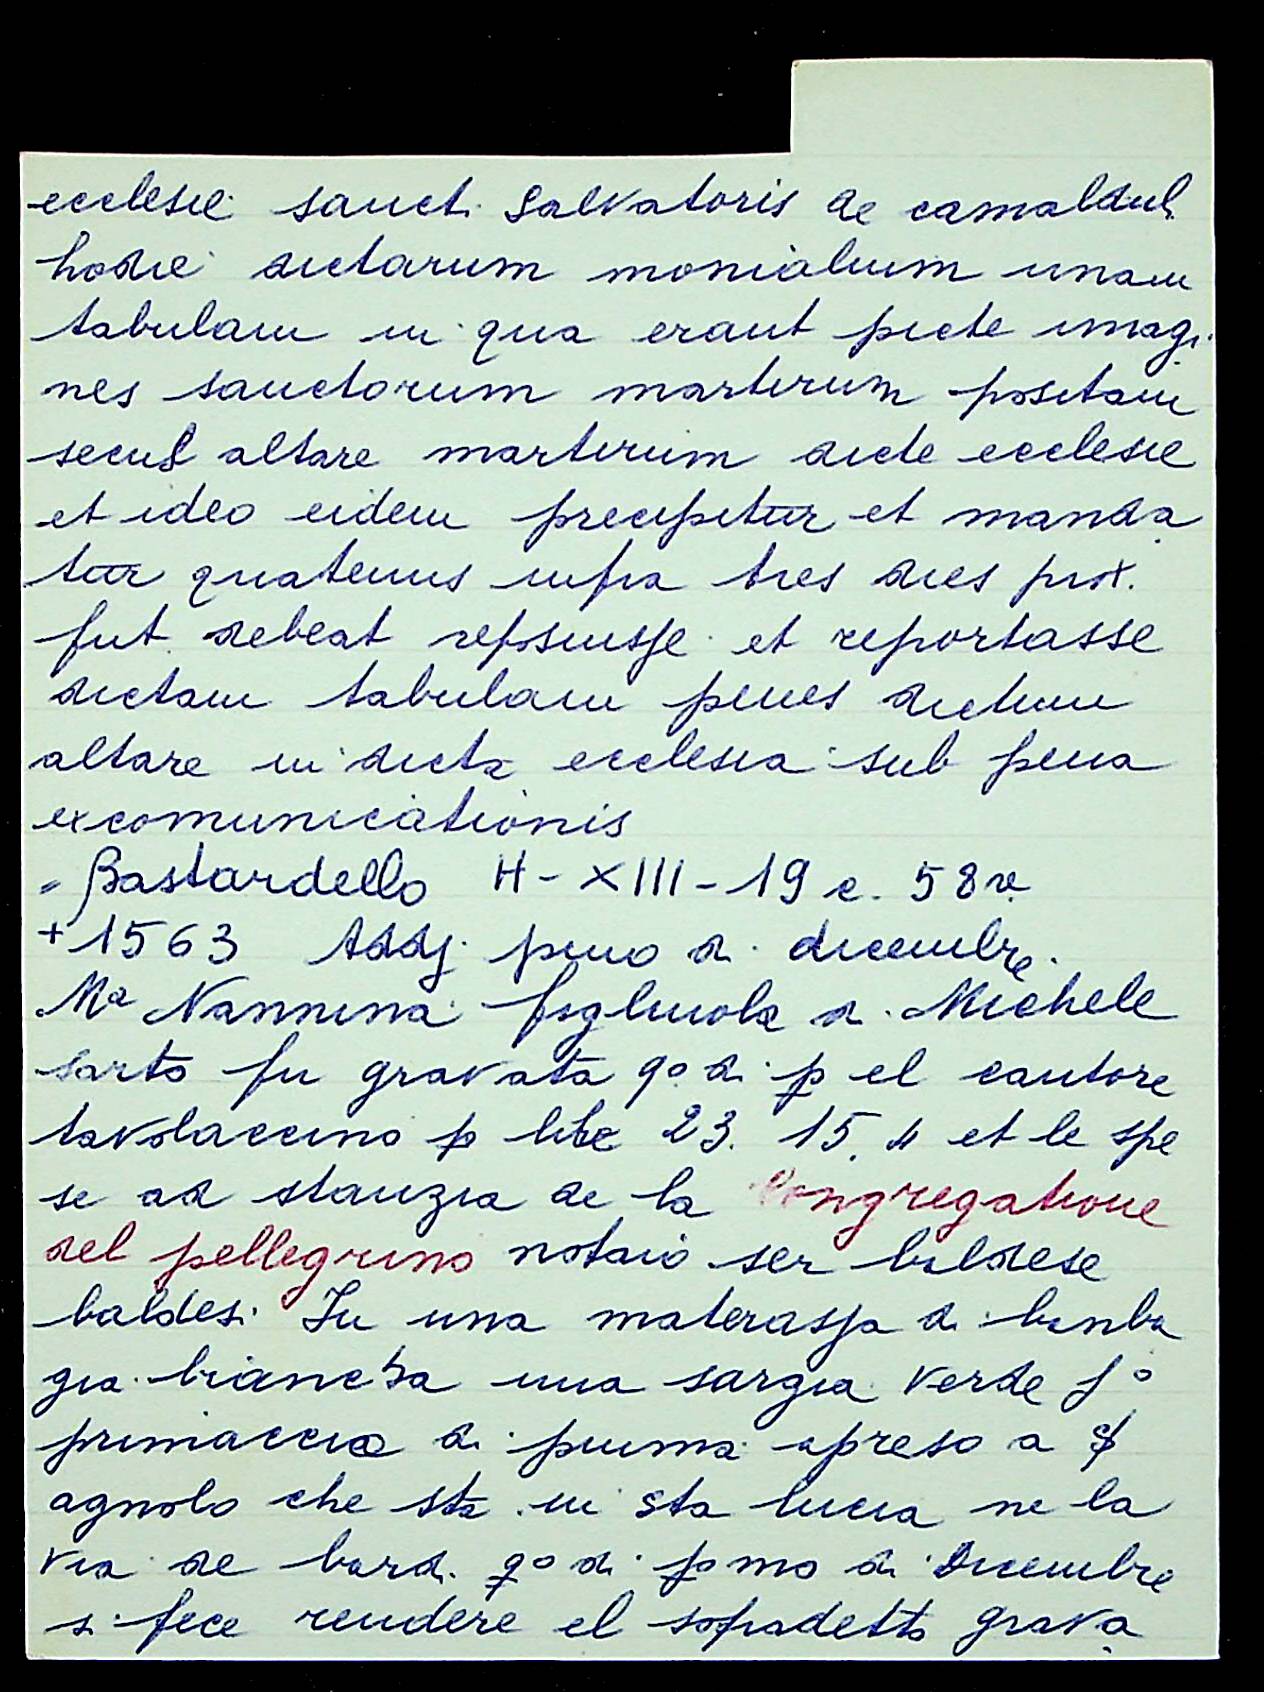 ecclesie sancti Salvatoris de camaldul.
hodie dictarum monialium unam
tabulam in qua erant picte imagi
nes sanctorum martirum positam
secus altare martirum dicte ecclesie
et ideo eidem precipitur et manda
tur quatenus infra tres dies prox.
fut. debeat reposuisse et reportasse
dictam tabulam penes dictum
altare in dicta ecclesia sub pena
excomunicationis
= Bastardello H - XIII - 19 c. 58 v.
+ 1563 Addj primo di dicembre.
Mª Nannina figliuola di Michele
sarto fu gravata qº di p el cantore
tavolaccino p lire 23. 15. 4 et le spe
se ad stanzia de la Congregatione
del pellegrino notaio ser baldese
baldesi In una materassa di banba
gia biancha una sargia verde jº
primaccio di piuma apreso a
agnolo che sta in Sta lucia ne la
via de bardi qº di pº mo di Dicembre
si fece rendere el sopradetto grava